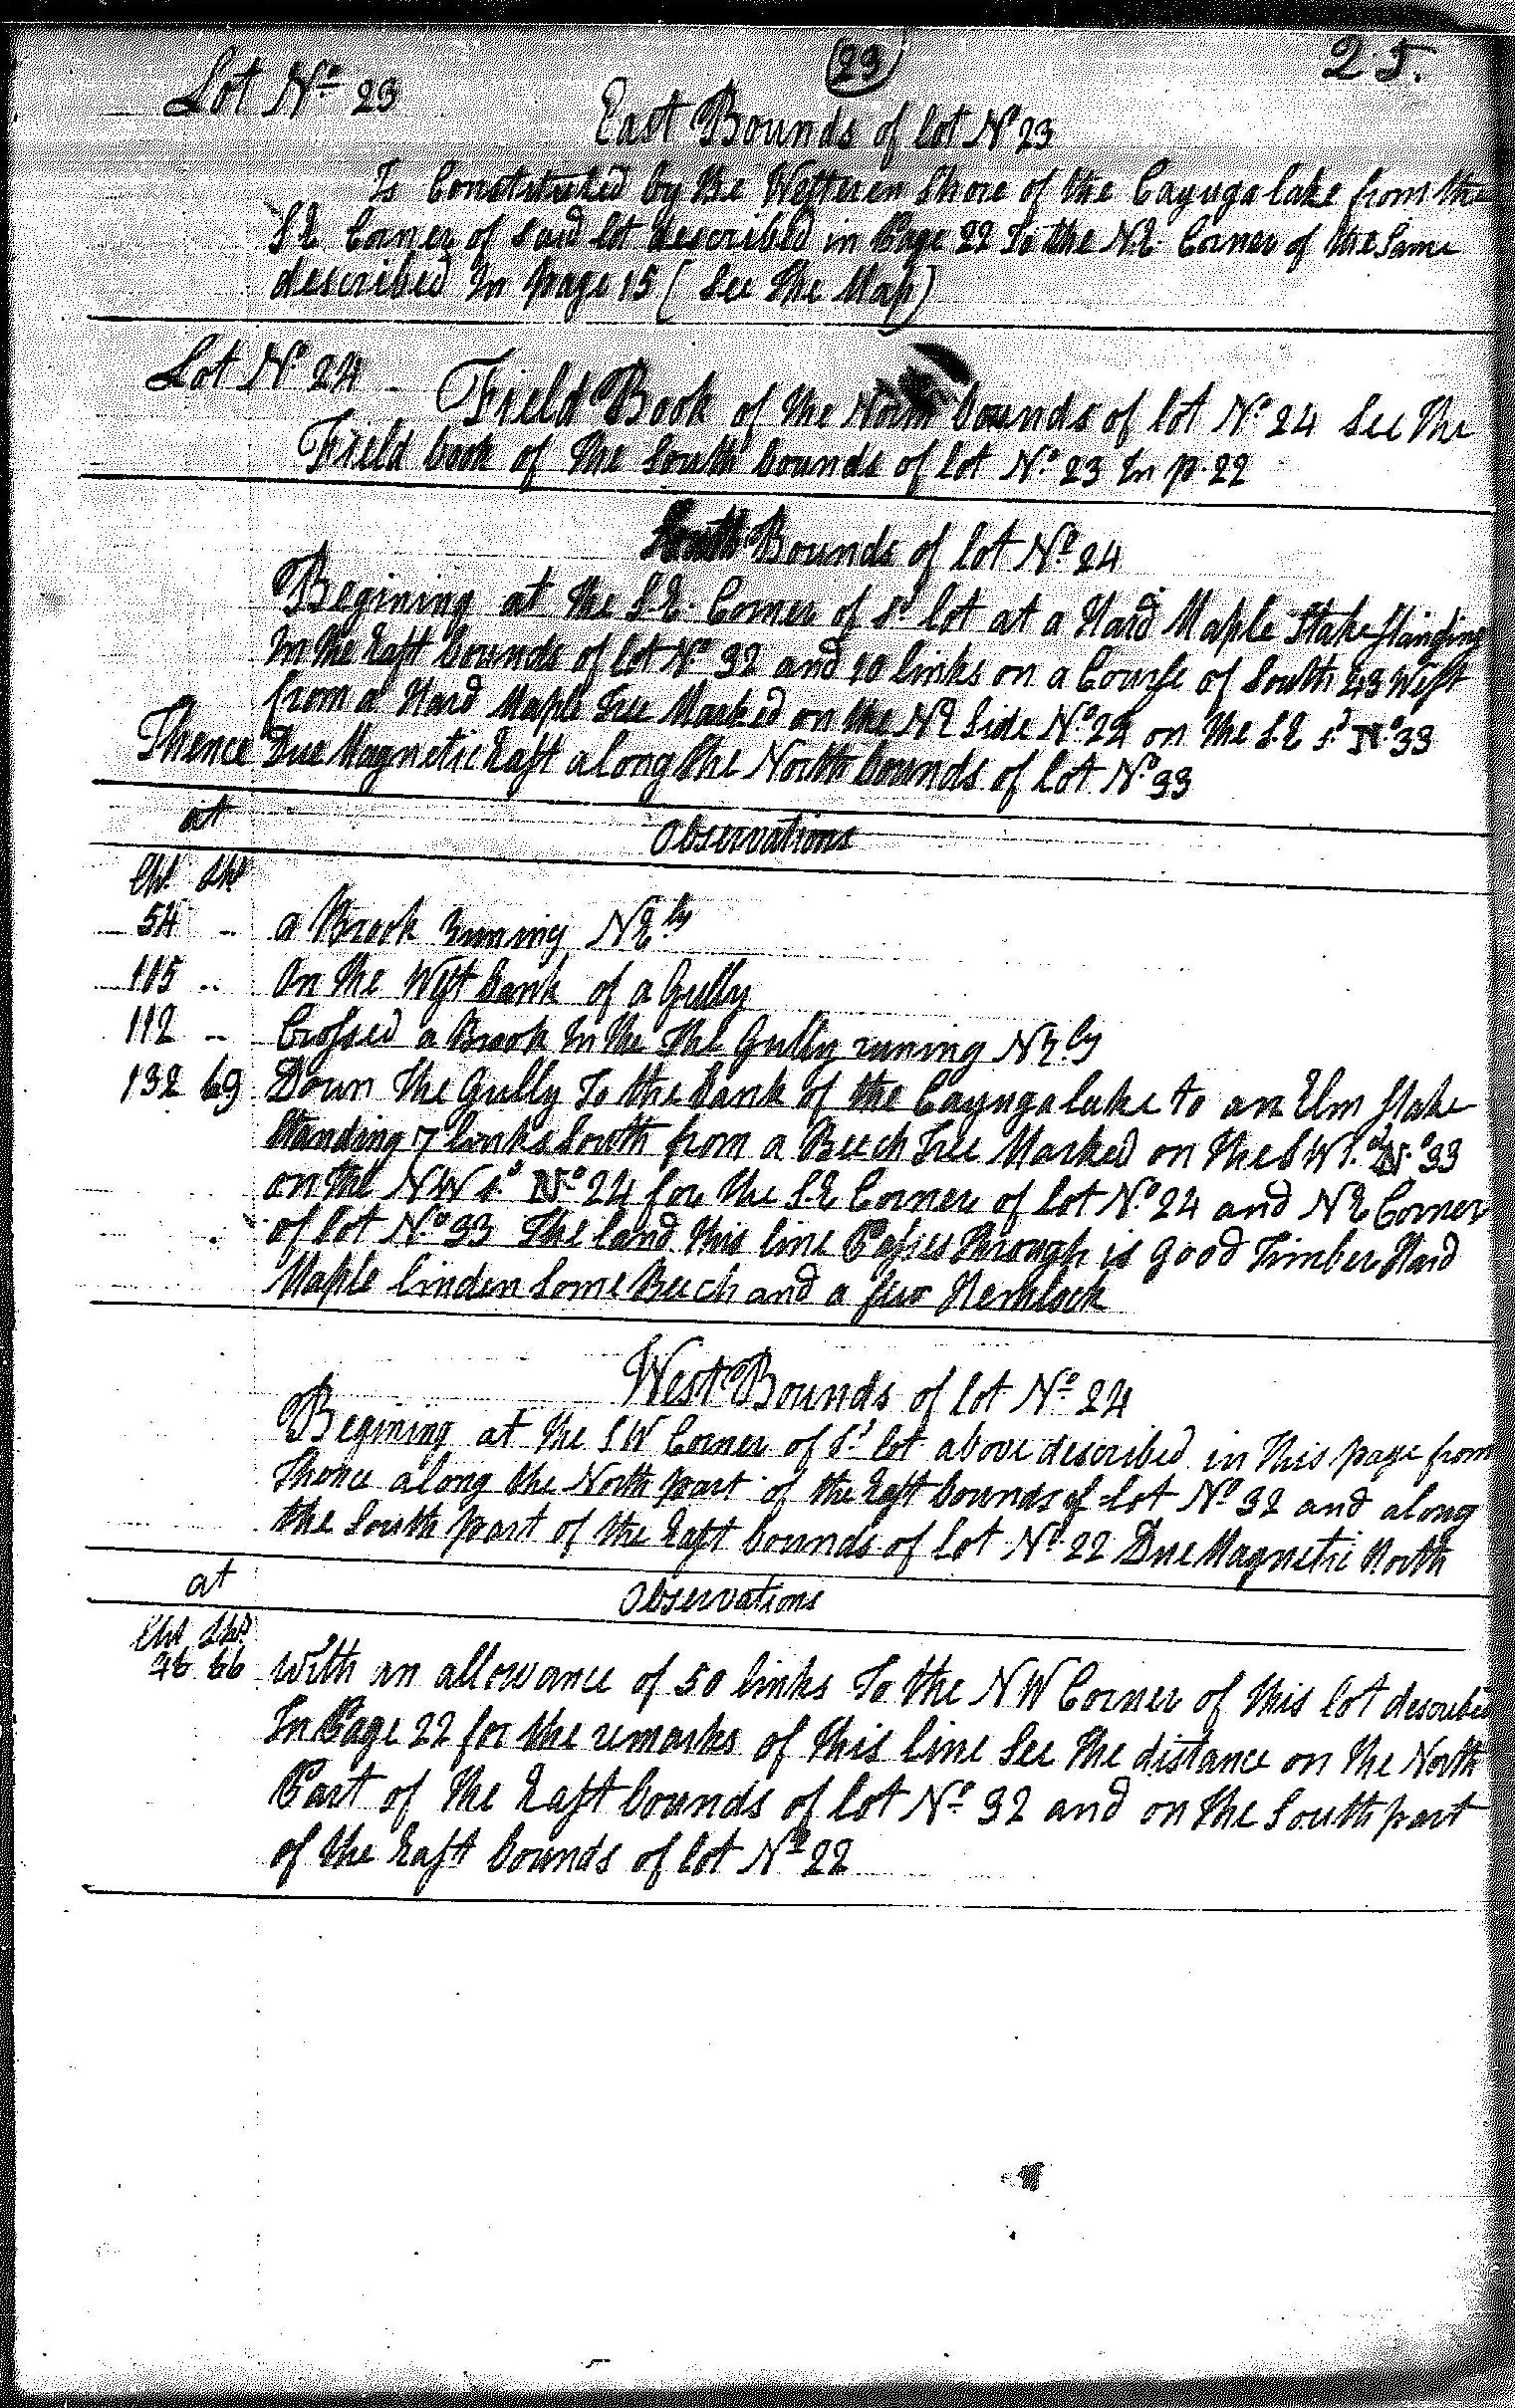 (23)
25.
Lot No 23
East Bounds of lot No 23
Is Constituted by the Western Shore of the Cayuga lake from the
S.E Corner of said lot described in Page 22 To the N.E. Corner of the Same
described In page 15 ( See The Map)
Lot No 24
Field Book of the North bounds of lot No 24 See The
Field book of the South bounds of lot No 23 In p. 22
South Bounds of lot No 24
Begining at the S.E. Corner of sd lot at a Hard Maple Stake standing
In the East bounds of lot No 32 and 10 links on a Course of South 43 West
from a Hard Maple Tree Marked on the NE Side No 24 on the S.E sd No 33
Thence Due Magnetic East along the North bounds of lot No 33
at
Observations
Chs Lks
54 .. a Brook runing NEly
105 .. On the West bank of a Gully
112 .. Crossed a Brook In the The Gully runing NEly
132 69 Down The Gully To the bank of the Cayuga lake to an Elm stake
Standing 7 links South from a Beech Tree Marked on the SW Sd No 33
on the NW sd No 24 for the S.E Corner of lot No 24 and NE Corner
of lot No 33 The land this line Passes through is good Timber Hard
Maple linden Some Beech and a few Hemlock
West Bounds of lot No 24
Begining at the SW Corner of Sd lot above described in this page from
Thence along the North part of the East bounds of lot No 32 and along
the South part of the East bounds of lot No 22 Due Magnetic North
at
Observations
Chs Lks
46 66 with an allowance of 50 links To the NW Corner of this lot described
In Page 22 for the remarks of this line See the distance on the North
Part of the East bounds of lot No 32 and on the South part
of the East bounds of lot No 22